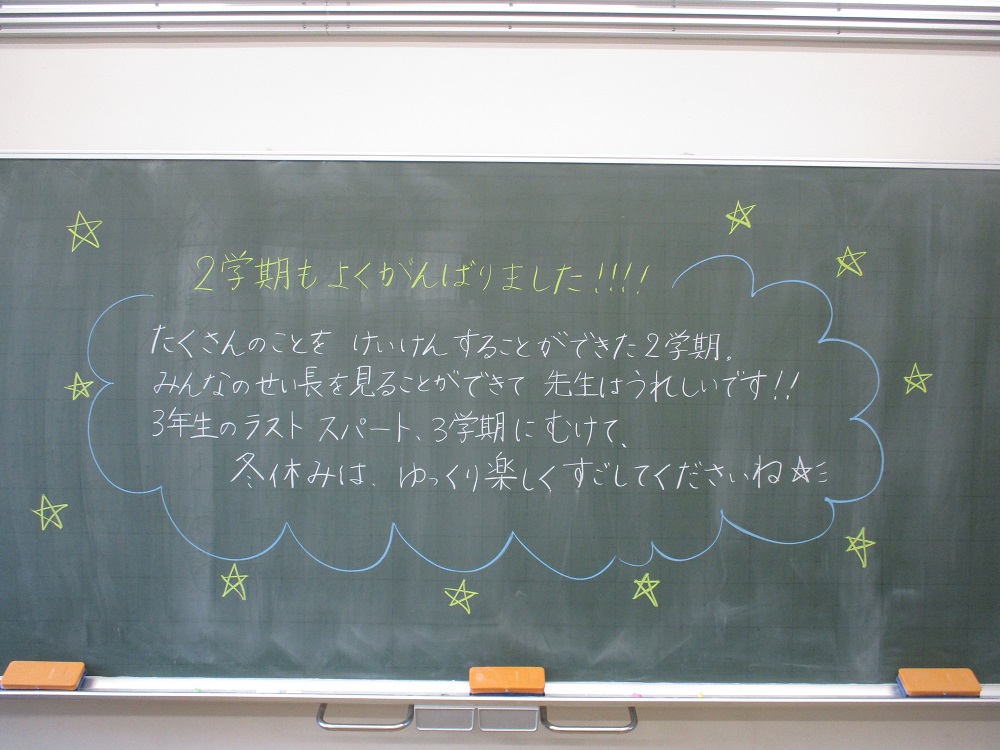 2学期もよくがんばりました!!!!
たくさんのことを けいけんすることができた2学期。
みんなのせい長を見ることができて 先生はうれしいです!!
3年生のラストスパート、3学期にむけて、
冬休みは、ゆっくり楽しくすごしてくださいね☆